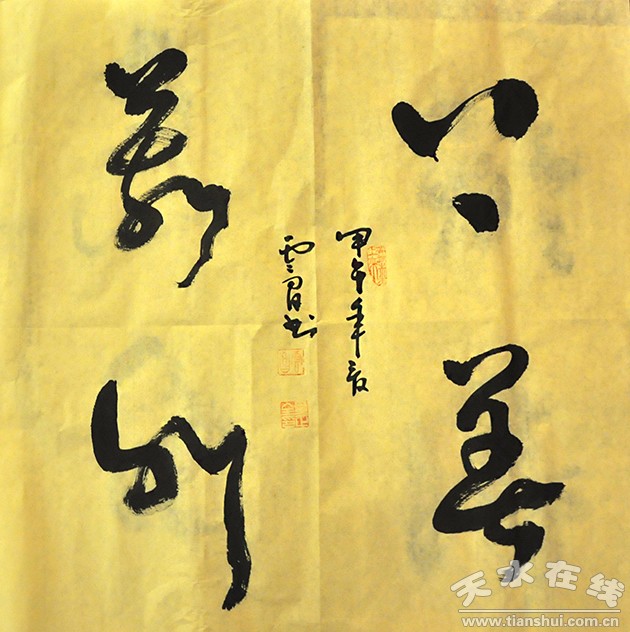 上善
若水
甲午年夏
天水在线
www.tianshui.com.cn